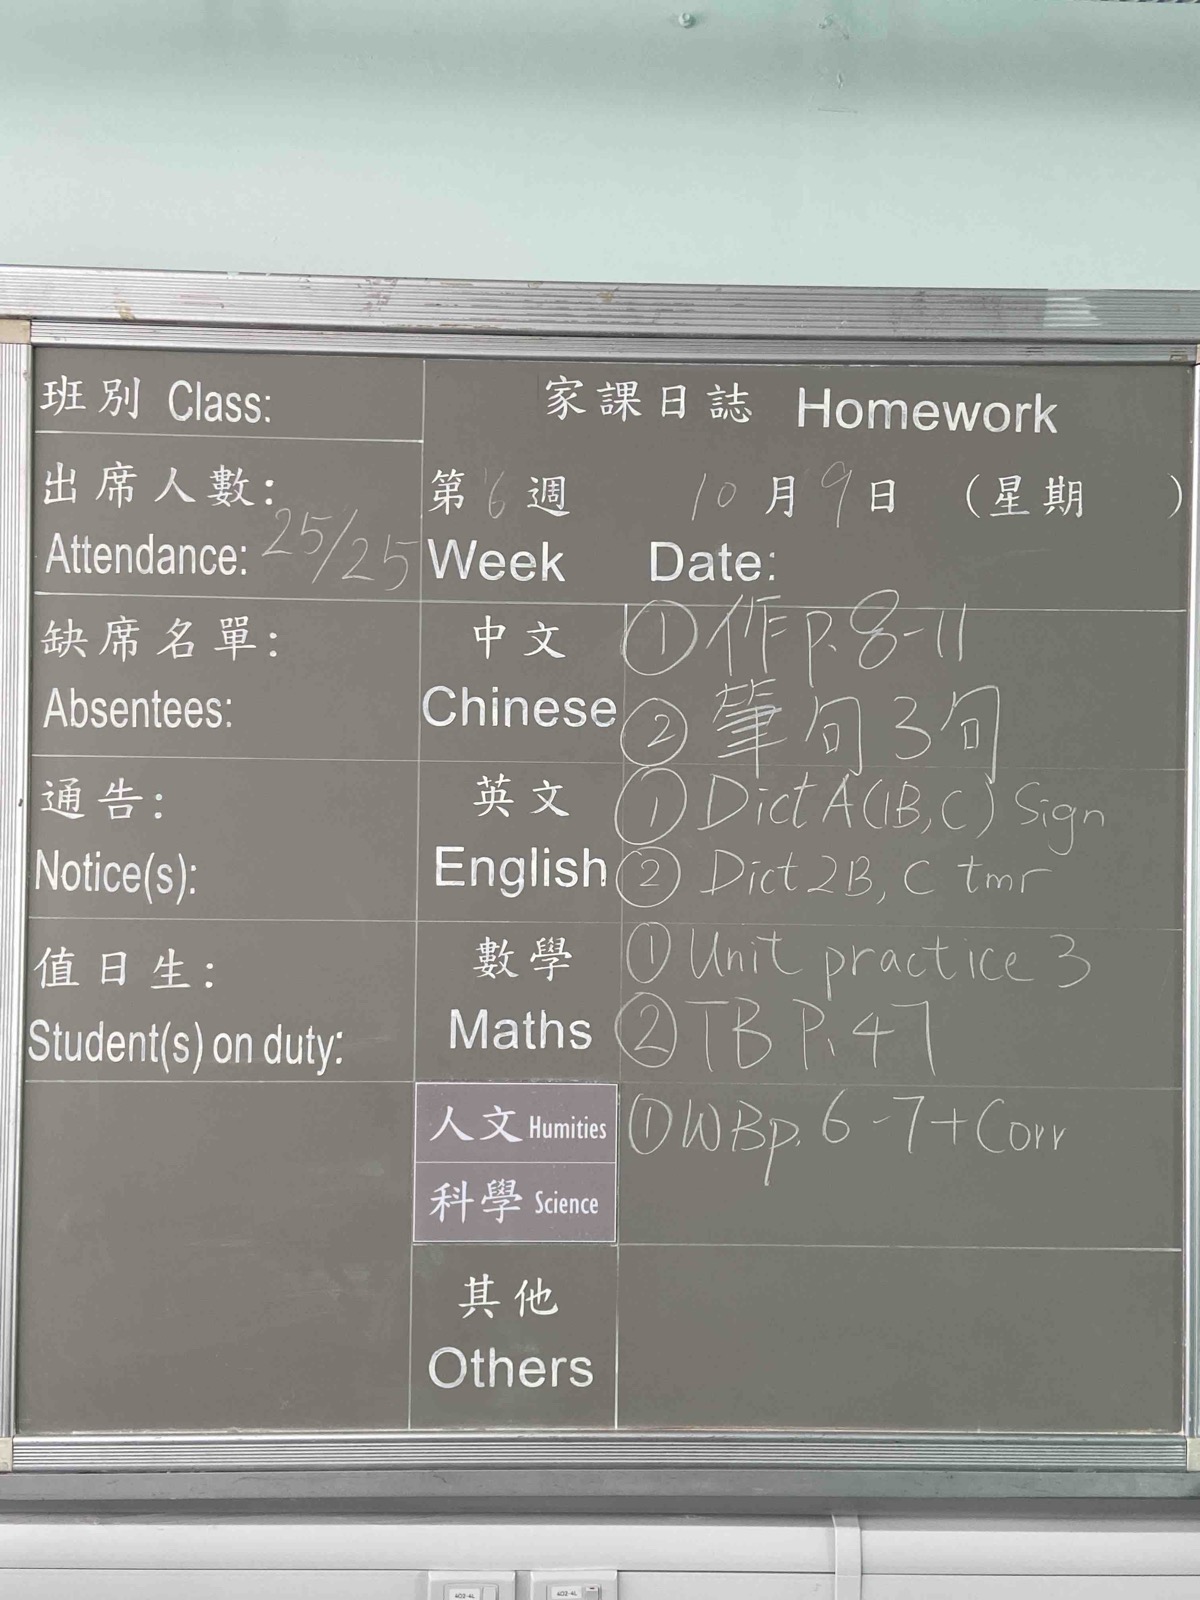 班別 Class:
家課日誌 Homework
出席人數:
Attendance: 25/25
第6週 10月9日 (星期 )
Week Date:
缺席名單:
Absentees:
中文
Chinese
① 作p.8-11
② 筆句3句
通告:
Notice(s):
英文
English
① Dict A(1B,C) Sign
② Dict 2B, C tmr
值日生:
Student(s) on duty:
數學
Maths
① Unit practice 3
② TB P.47
人文 Humities
① WBp.6-7+Corr
科學 Science
其他
Others
402-4L
402-4L